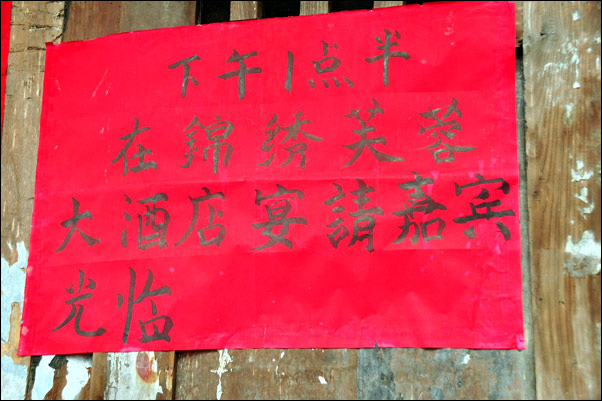 下午1点半
在錦绣芙蓉
大酒店宴請嘉宾
光临